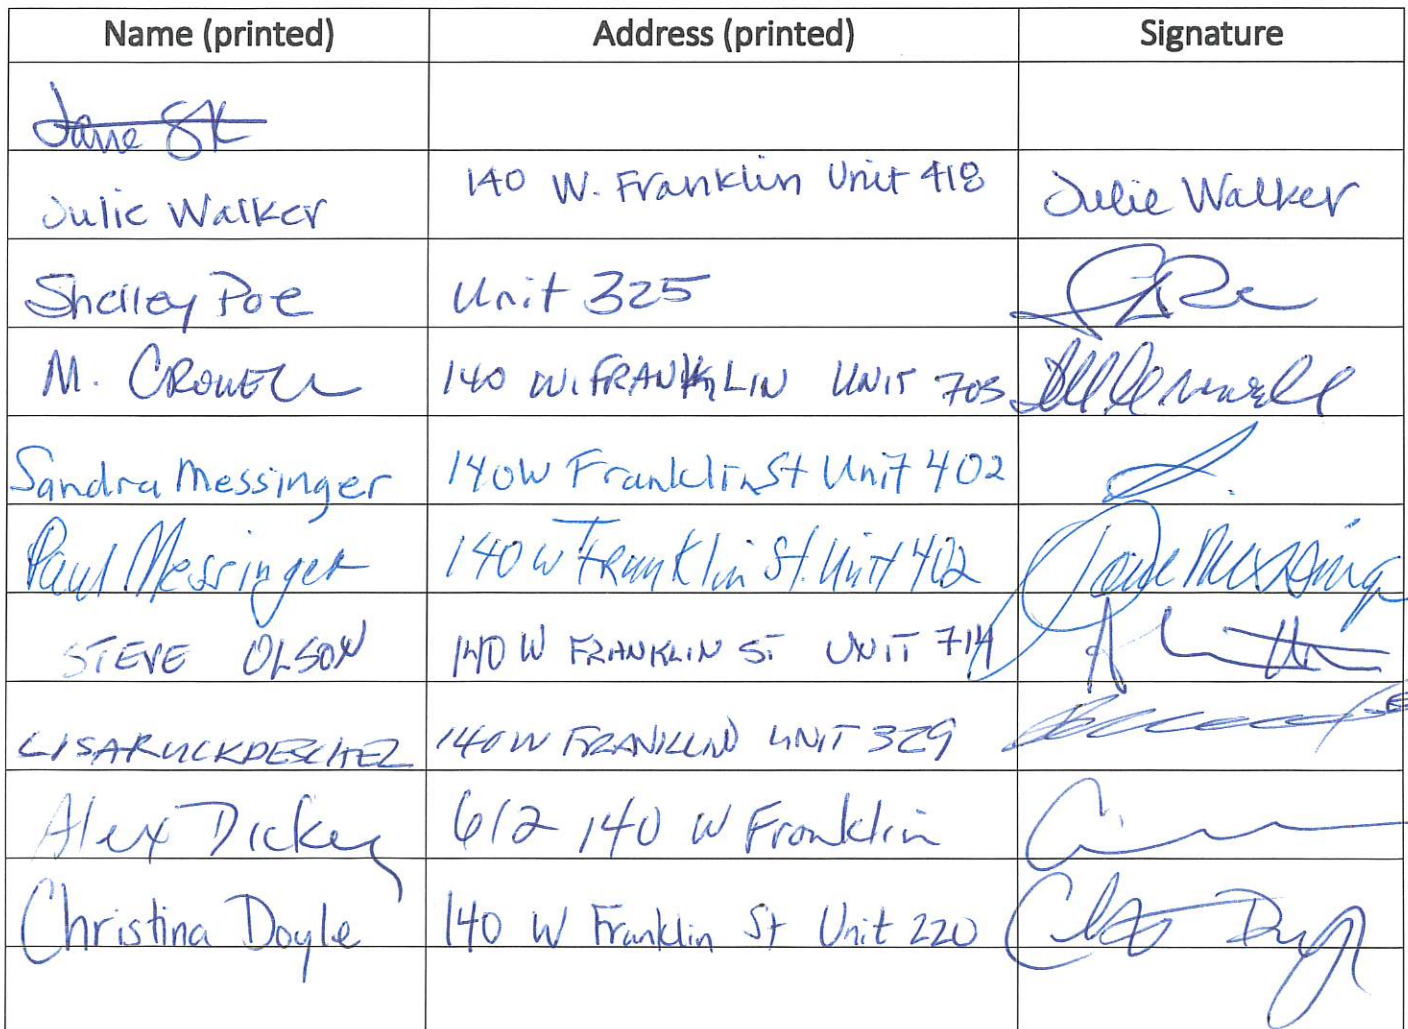 Name (printed) Address (printed) Signature
Jane
Julie Walker 140 W. Franklin Unit 418 Julie Walker
Shelley Poe Unit 325
M. CROWELL 140 W. FRANKLIN UNIT 703
Sandra Messinger 140 W Franklin St Unit 402
Paul Messinger 140 W Franklin St. Unit 402 Paul Messinger
STEVE OLSON 140 W FRANKLIN ST UNIT 714
LISA RUCKDESCHEL 140 W FRANKLIN UNIT 329
Alex Dickey 612 140 W Franklin
Christina Doyle 140 W Franklin St Unit 220